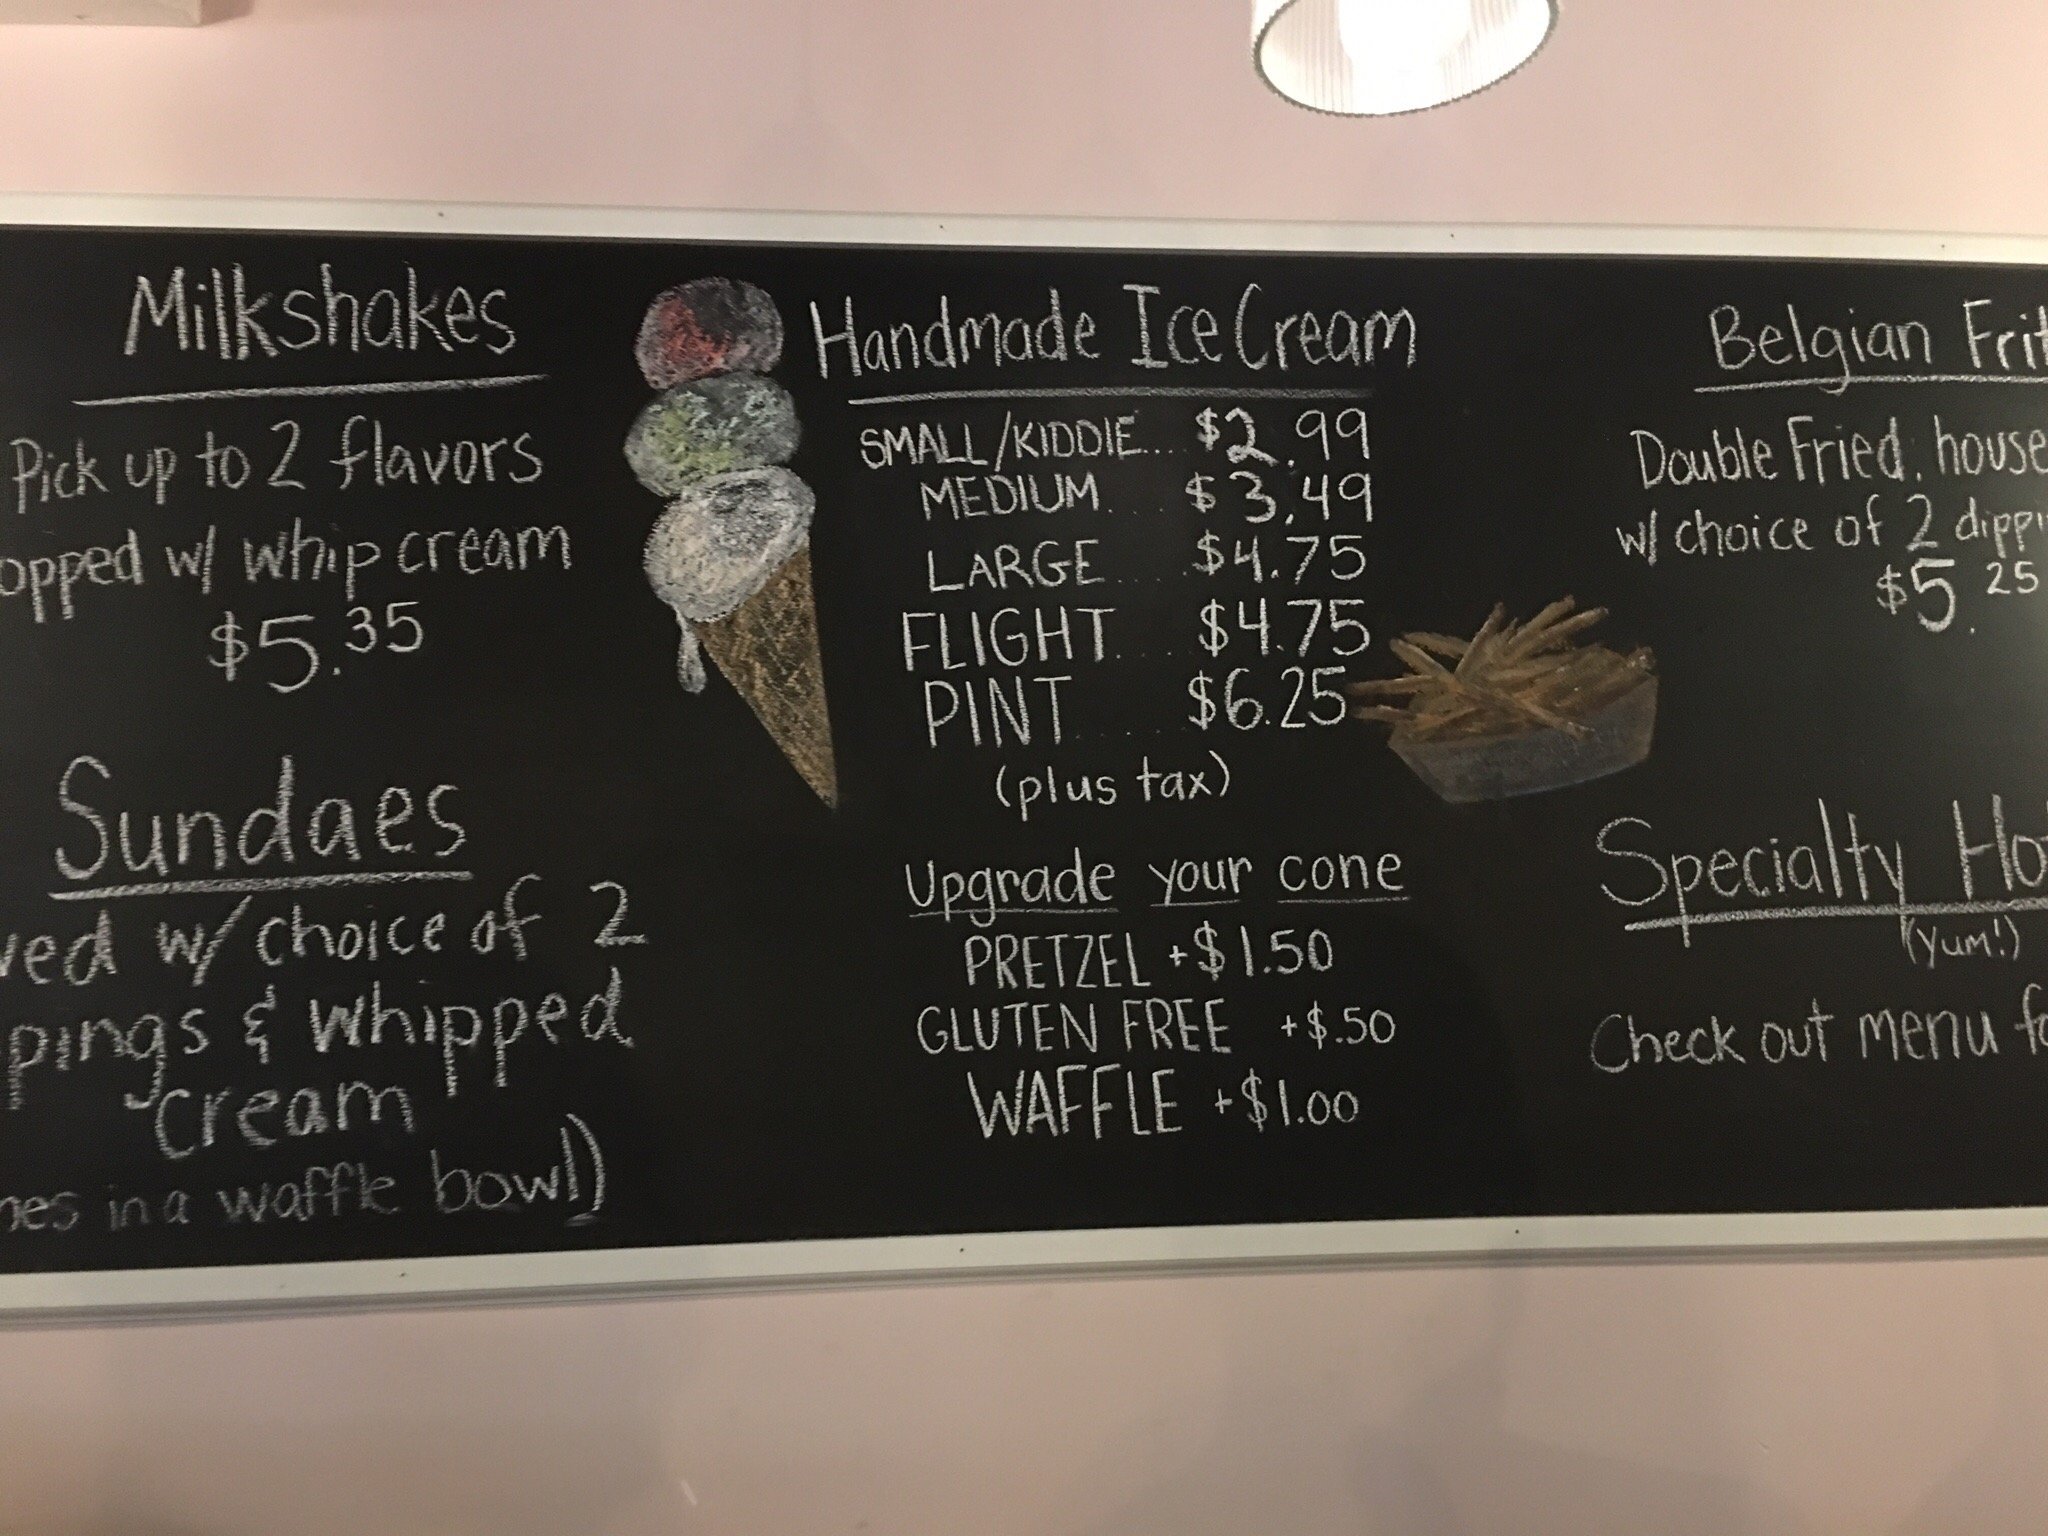 Milkshakes
Pick up to 2 flavors
opped w/ whip cream
$5.35
Sundaes
ved w/ choice of 2
ppings & whipped
cream
mes in a waffle bowl)
Handmade Ice Cream
SMALL/KIDDIE.... $2.99
MEDIUM.... $3.49
LARGE..... $4.75
FLIGHT.... $4.75
PINT..... $6.25
(plus tax)
Upgrade your cone
PRETZEL +$1.50
GLUTEN FREE +$.50
WAFFLE +$1.00
Belgian Frit
Double Fried, house
w/ choice of 2 dippi
$5.25
Specialty Ho
(Yum!)
Check out menu fo